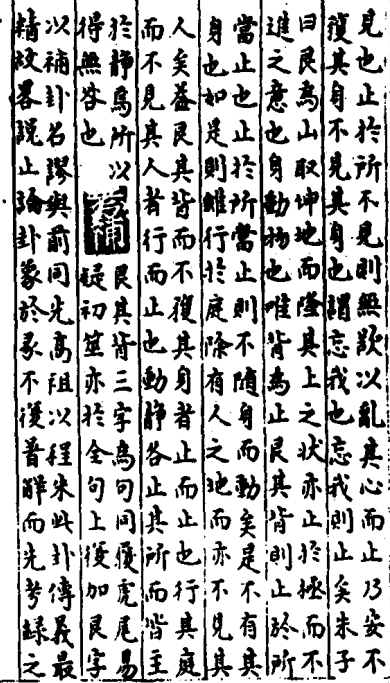 見也止於所不見則無欲以亂其心而止乃安不
獲其身不見其身也謂忘我也忘我則止矣朱子
曰艮為山取坤地而隆其上之狀亦止於極而不
進之意也身動物也唯背為止艮其背則止於所
當止也止於所當止則不隨身而動矣是不有其
身也如是則雖行於庭除有人之地而亦不見其
人矣蓋艮其背而不獲其身者止而止也行其庭
而不見其人者行而止也動靜各止其所而皆主
於靜焉所以
得無咎也
考補
艮其背三字為句同履虎尾易
疑初筮亦於全句上復加艮字
以補卦名謬與前同先高祖以程朱此卦傳義最
精故畧說止論卦象於彖不復普解而先考錄之